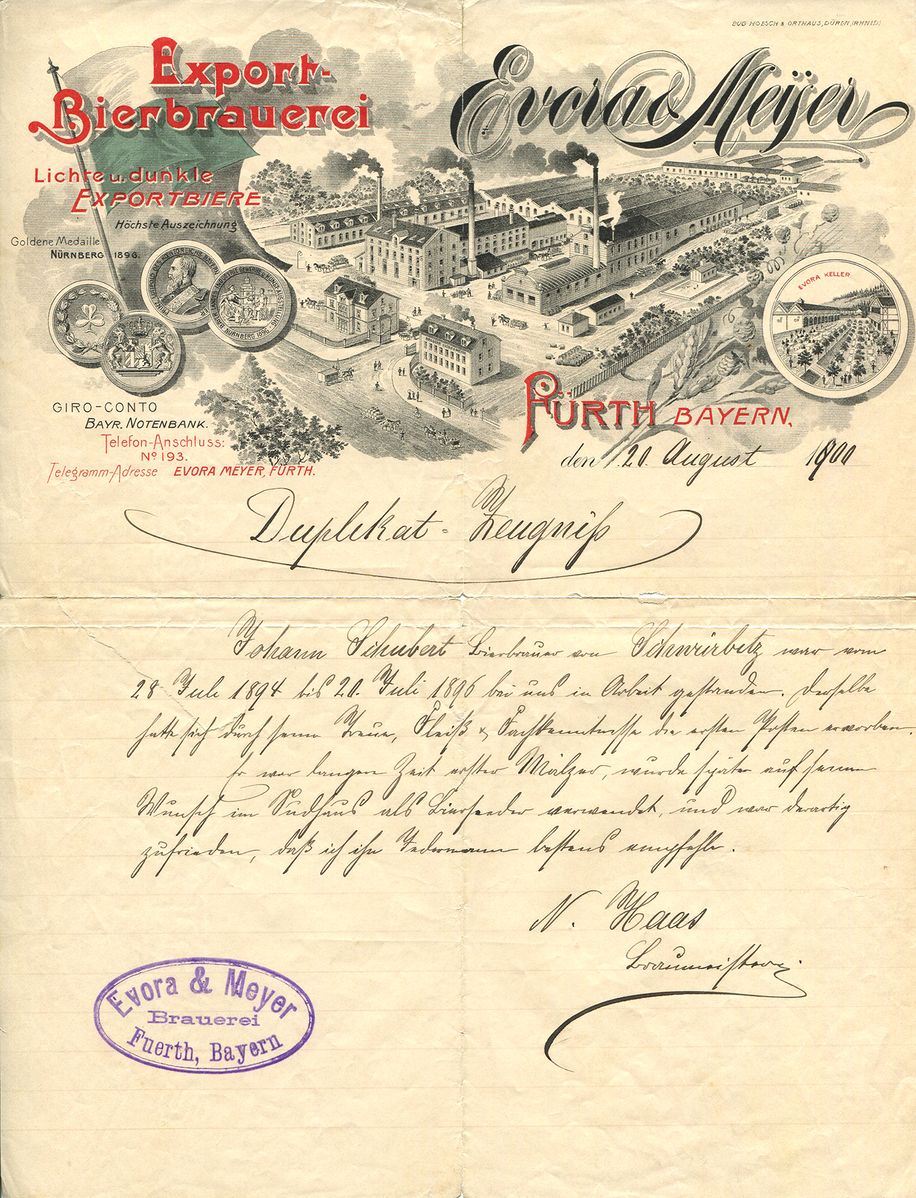 EUG HOESCH & ORTHAUS, DÜREN, (RHNLD)
Export-
Bierbrauerei
Evora & Meÿer
Lichte u. dunkle
EXPORTBIERE
Höchste Auszeichnung
Goldene Medaille
NÜRNBERG 1896.
EVORA KELLER
GIRO-CONTO
BAYR. NOTENBANK.
Telefon-Anschluss:
No 193.
Telegramm-Adresse EVORA MEYER, FÜRTH.
FÜRTH BAYERN,
den 20. August 1900
Duplikat-Zeugniß
Johann Schubert Bierbrauer von Schwürbitz war vom
28 Juli 1894 bis 20. Juli 1896 bei uns in Arbeit gestanden. Derselbe
hatte sich durch seine Treue, Fleiß & Fachkenntnisse die ersten Posten erworben.
Er war längere Zeit erster Mälzer, wurde später auf seinen
Wunsch im Sudhaus als Biersieder verwendet, und war derartig
zufrieden, daß ich ihn Jedermann bestens empfehle.
N. Haas
Braumeister.
Evora & Meyer
Brauerei
Fuerth, Bayern